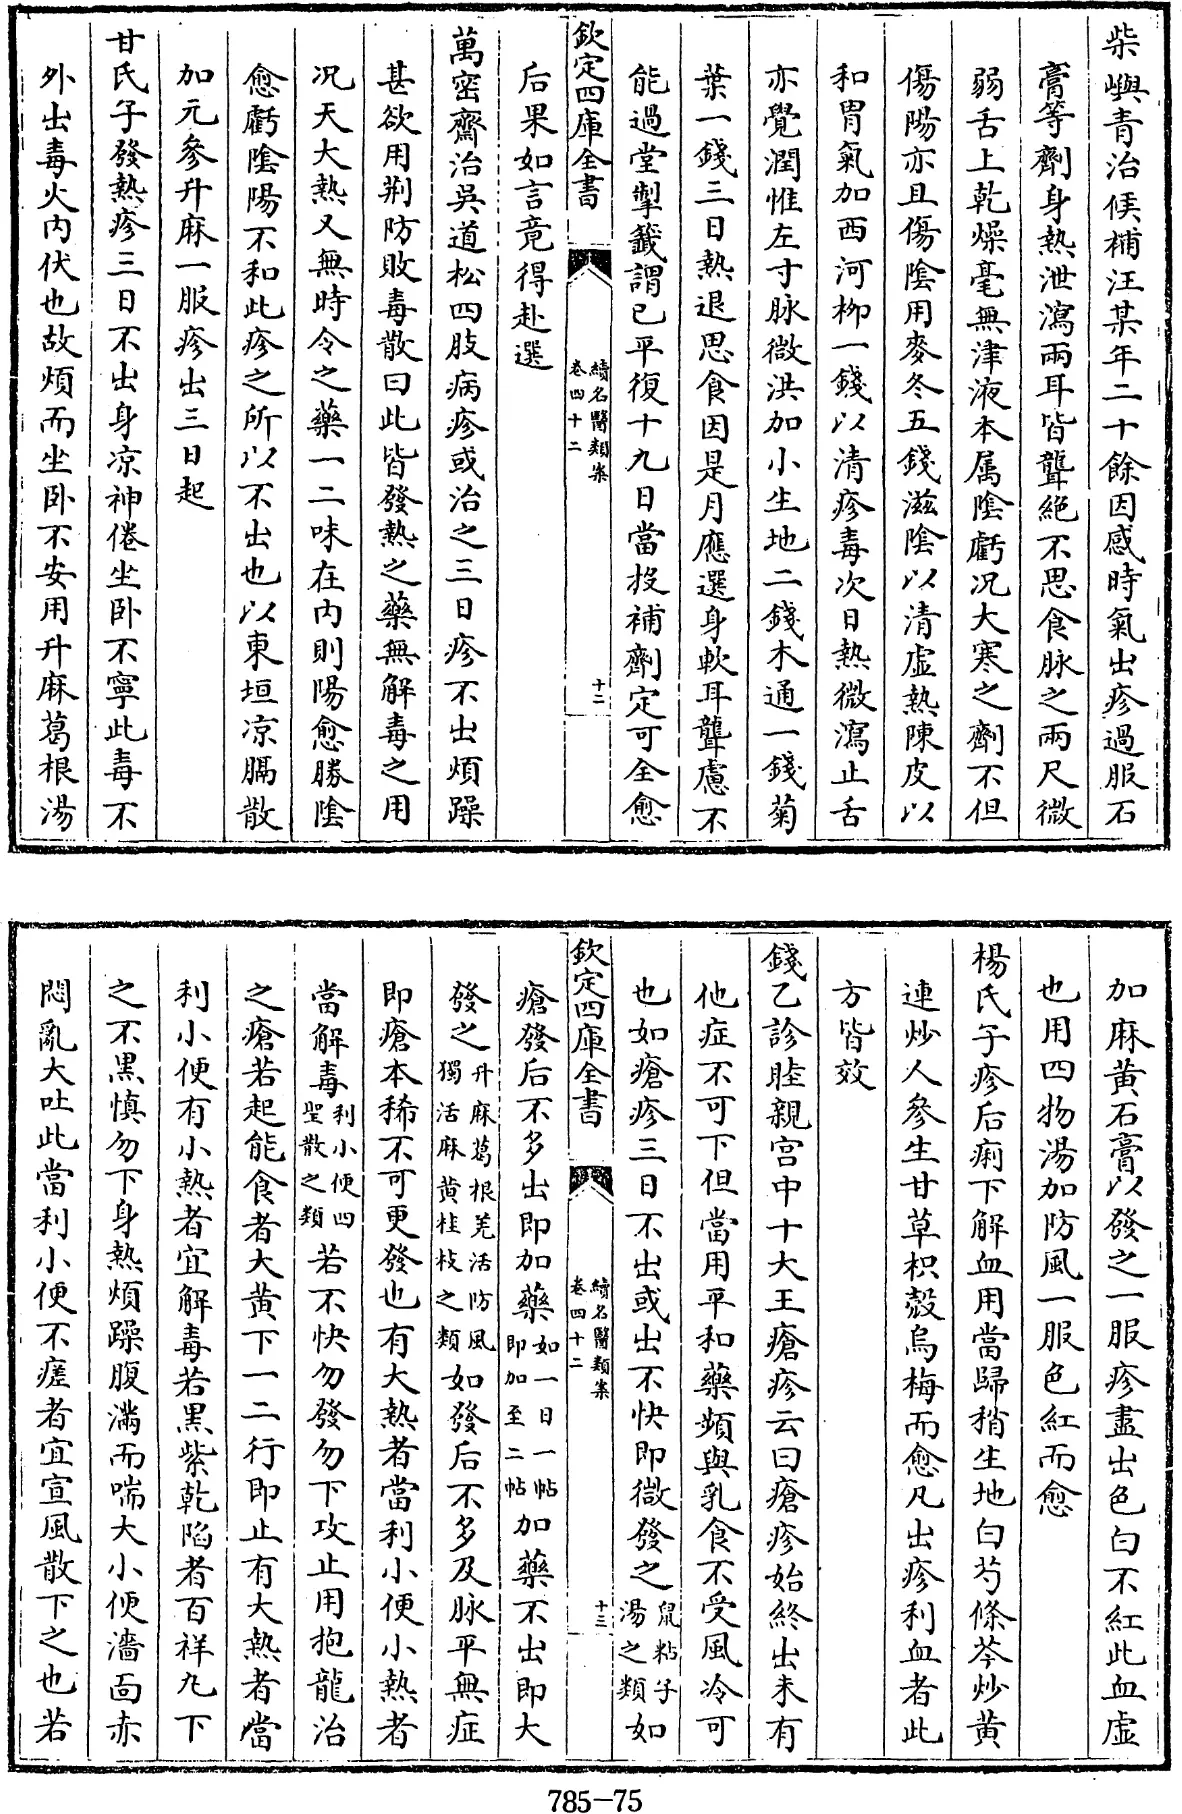 柴嶼青治候補汪某年二十餘因感時氣出疹過服石
膏等劑身熱泄瀉兩耳皆聾絶不思食脉之兩尺微
弱舌上乾燥毫無津液本属陰虧况大寒之劑不但
傷陽亦且傷陰用麥冬五錢滋陰以清虚熱陳皮以
和胃氣加西河柳一錢以清疹毒次日熱微瀉止舌
亦覺潤惟左寸脉微洪加小生地二錢木通一錢菊
葉一錢三日熱退思食因是月應選身軟耳聾慮不
能過堂掣籖謂已平復十九日當投補劑定可全愈
欽定四庫全書
續名醫類案
卷四十二
十二
后果如言竟得赴選
萬密齋治吳道松四肢病疹或治之三日疹不出煩躁
甚欲用荆防敗毒散曰此皆發熱之藥無解毒之用
况天大熱又無時令之藥一二味在内則陽愈勝陰
愈虧陰陽不和此疹之所以不出也以東垣凉膈散
加元參升麻一服疹出三日起
甘氏子發熱疹三日不出身凉神倦坐卧不寧此毒不
外出毒火内伏也故煩而坐卧不安用升麻葛根湯
加麻黄石膏以發之一服疹盡出色白不紅此血虚
也用四物湯加防風一服色紅而愈
楊氏子疹后痢下解血用當歸稍生地白芍條芩炒黄
連炒人參生甘草枳殼烏梅而愈凡出疹利血者此
方皆效
錢乙診睦親宫中十大王瘡疹云曰瘡疹始終出未有
他症不可下但當用平和藥頻與乳食不受風冷可
也如瘡疹三日不出或出不快即微發之鼠粘子湯之類如
欽定四庫全書
續名醫類案
卷四十二
十三
瘡發后不多出即加藥如一日一帖即加至二帖加藥不出即大
發之升麻葛根羌活防風獨活麻黄桂枝之類如發后不多及脉平無症
即瘡本稀不可更發也有大熱者當利小便小熱者
當解毒利小便四聖散之類若不快勿發勿下攻止用抱龍治
之瘡若起能食者大黄下一二行即止有大熱者當
利小便有小熱者宜解毒若黑紫乾陷者百祥丸下
之不黑慎勿下身熱煩躁腹滿而喘大小便濇面赤
悶亂大吐此當利小便不瘥者宜宣風散下之也若
785-75